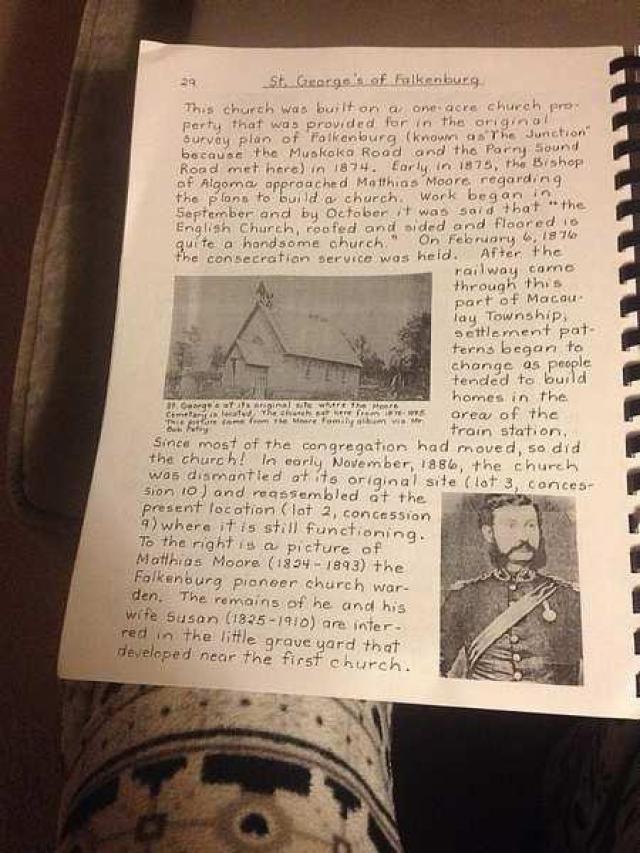 29
St. George's of Falkenburg
This church was built on a one-acre church pro-
perty that was provided for in the original
survey plan of Falkenburg (known as "The Junction"
because the Muskoka Road and the Parry Sound
Road met here) in 1874. Early in 1875, the Bishop
of Algoma approached Matthias Moore regarding
the plans to build a church. Work began in
September and by October it was said that "the
English Church, roofed and sided and floored is
quite a handsome church." On February 6, 1876
the consecration service was held. After the
railway came
through this
part of Macau-
lay Township,
settlement pat-
terns began to
change as people
tended to build
homes in the
area of the
train station.
St. George's at its original site where the Moore
Cemetery is located. The church sat here from
This picture came from the Moore family album via Mr.
Bob Petry
Since most of the congregation had moved, so did
the church! In early November, 1886, the church
was dismantled at its original site (lot 3, conces-
sion 10) and reassembled at the
present location (lot 2, concession
9) where it is still functioning.
To the right is a picture of
Matthias Moore (1824-1893) the
Falkenburg pioneer church war-
den. The remains of he and his
wife Susan (1825-1910) are inter-
red in the little grave yard that
developed near the first church.